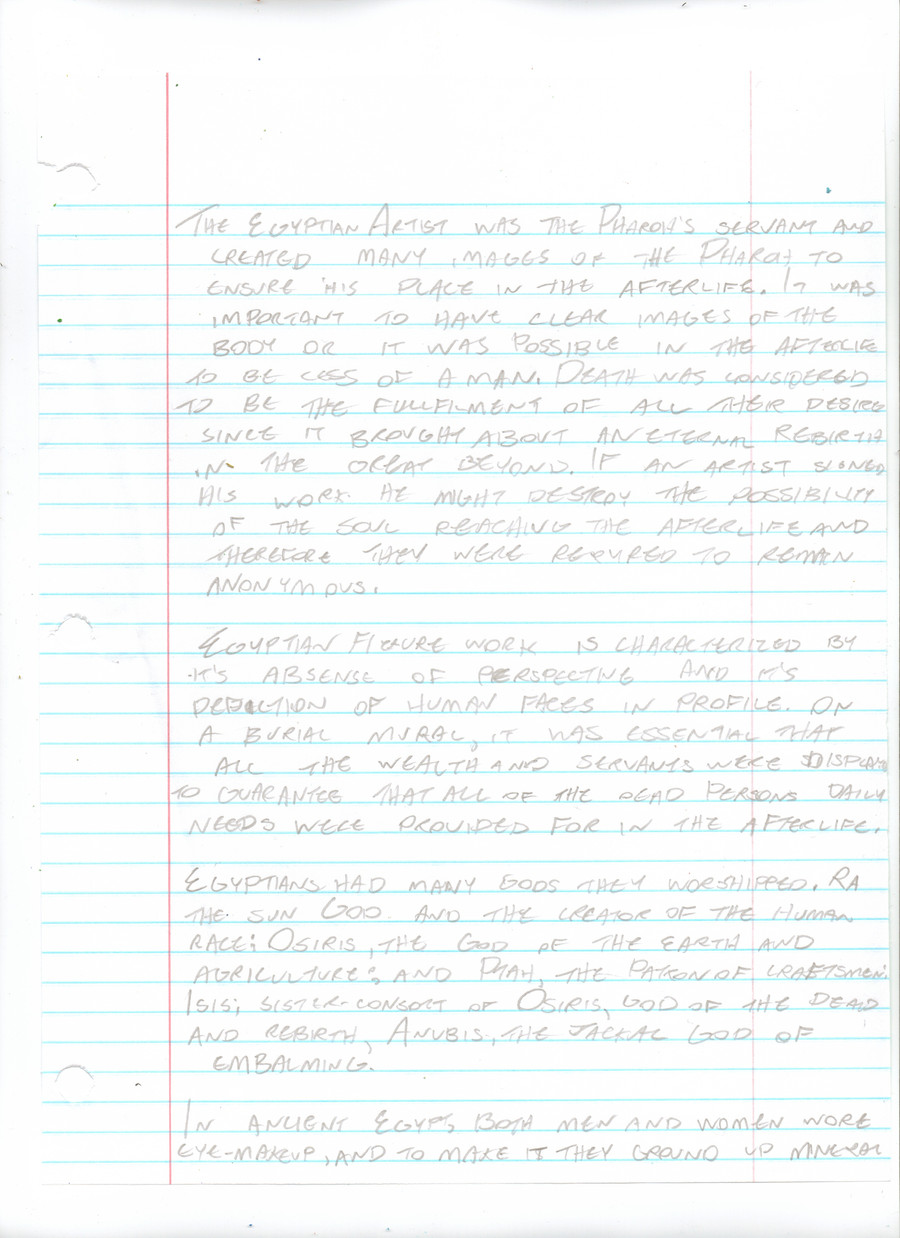 THE EGYPTIAN ARTIST WAS THE PHAROH'S SERVANT AND
CREATED MANY IMAGES OF THE PHAROH TO
ENSURE HIS PLACE IN THE AFTERLIFE. IT WAS
IMPORTANT TO HAVE CLEAR IMAGES OF THE
BODY OR IT WAS POSSIBLE IN THE AFTERLIFE
TO BE LESS OF A MAN. DEATH WAS CONSIDERED
TO BE THE FULLFILMENT OF ALL THEIR DESIRE
SINCE IT BROUGHT ABOUT AN ETERNAL REBIRTH
IN THE GREAT BEYOND. IF AN ARTIST SIGNED
HIS WORK HE MIGHT DESTROY THE POSSIBILITY
OF THE SOUL REACHING THE AFTERLIFE AND
THEREFORE THEY WERE REQUIRED TO REMAIN
ANONYMOUS.
EGYPTIAN FIGURE WORK IS CHARACTERIZED BY
IT'S ABSENSE OF PERSPECTING AND IT'S
DEPICTION OF HUMAN FACES IN PROFILE. ON
A BURIAL MURAL, IT WAS ESSENTIAL THAT
ALL THE WEALTH AND SERVANTS WERE
TO GUARANTEE THAT ALL OF THE DEAD PERSONS DAILY
NEEDS WERE PROVIDED FOR IN THE AFTERLIFE.
EGYPTIANS HAD MANY GODS THEY WORSHIPPED. RA
THE SUN GOD AND THE CREATOR OF THE HUMAN
RACE; OSIRIS, THE GOD OF THE EARTH AND
AGRICULTURE; AND PTAH, THE PATRON OF CRAFTSMEN.
ISIS; SISTER-CONSORT OF OSIRIS, GOD OF THE DEAD
AND REBIRTH, ANUBIS, THE JACKAL GOD OF
EMBALMING.
IN ANCIENT EGYPT, BOTH MEN AND WOMEN WORE
EYE-MAKEUP, AND TO MAKE IT THEY GROUND UP MINERAL